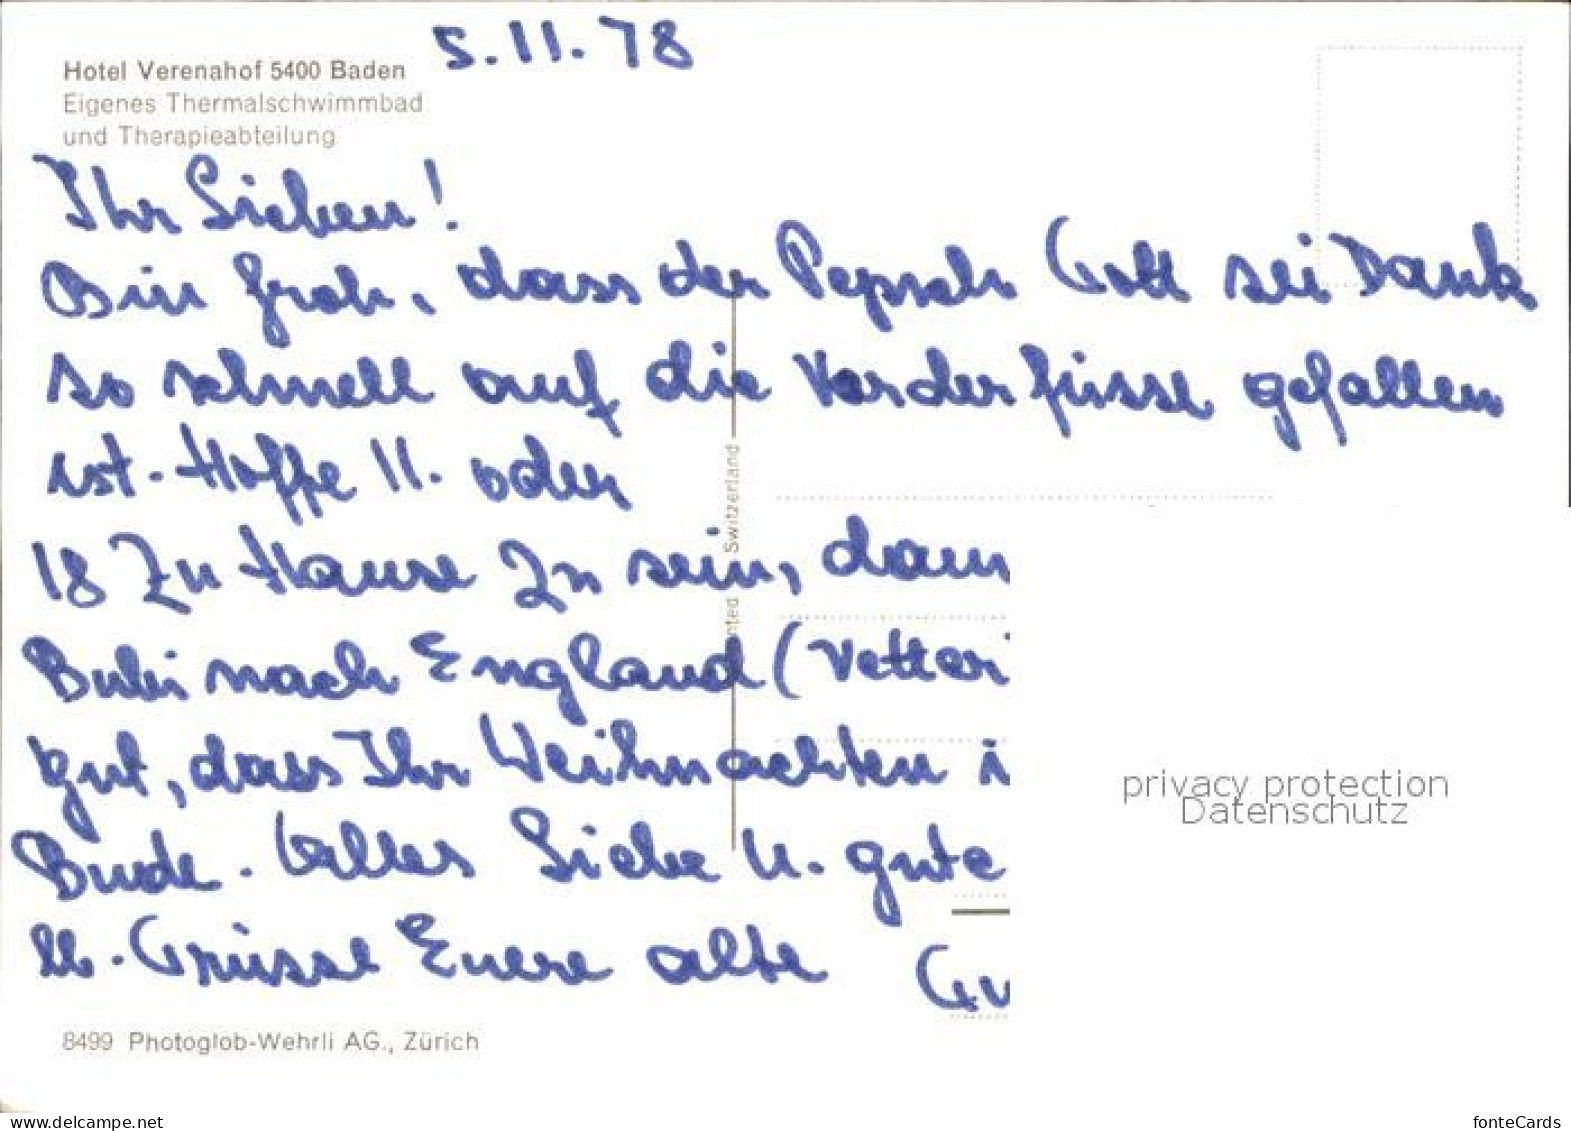 5.11.78
Hotel Verenahof 5400 Baden
Eigenes Thermalschwimmbad
und Therapieabteilung
Ihr Lieben!
Bin froh, dass der Pepsch Gott sei Dank
so schnell auf die Vorderfüsse gefallen
ist. Hoffe 11. oder
18 Zu Hause zu sein, dann
Bubi nach England (Vetter
gut, dass Ihr Weihnachten i
Bude. Alles Liebe u. gute
lb. Grüsse Euere alte
Switzerland
8499 Photoglob-Wehrli AG., Zürich
privacy protection
Datenschutz
www.delcampe.net
fonteCards